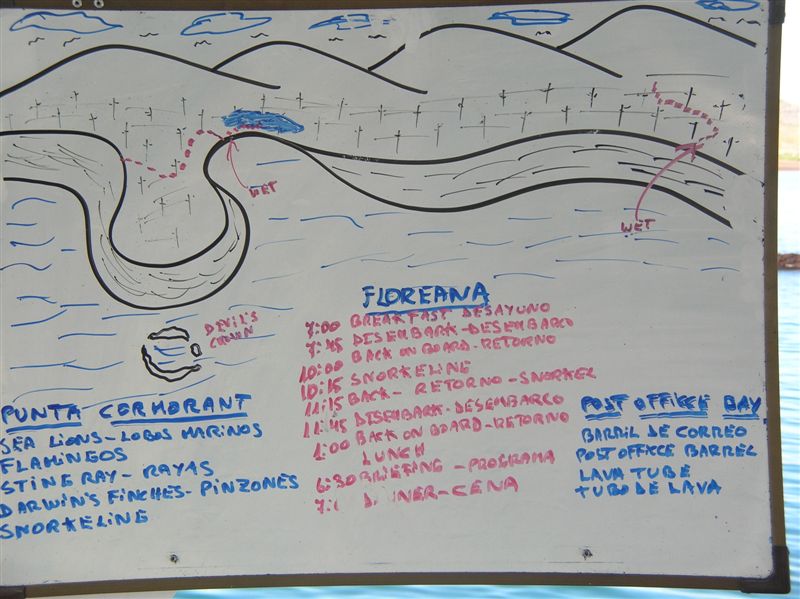 WET
WET
DEVIL'S
CROWN
FLOREANA
7:00 BREAKFAST DESAYUNO
7:45 DISEMBARK-DESEMBARCO
10:00 BACK ON BOARD-RETORNO
10:15 SNORKELING
11:15 BACK- RETORNO-SNORKEL
11:45 DISEMBARK-DESEMBARCO
1:00 BACK ON BOARD-RETORNO
LUNCH
6:30 BRIEFING - PROGRAMA
CENA
PUNTA CORMORANT
SEA LIONS-LOBOS MARINOS
FLAMINGOS
STING RAY- RAYAS
DARWIN'S FINCHES- PINZONES
SNORKELING
POST OFFICE BAY
BARRIL DE CORREO
POST OFFICE BARREL
LAVA TUBE
TUBO DE LAVA